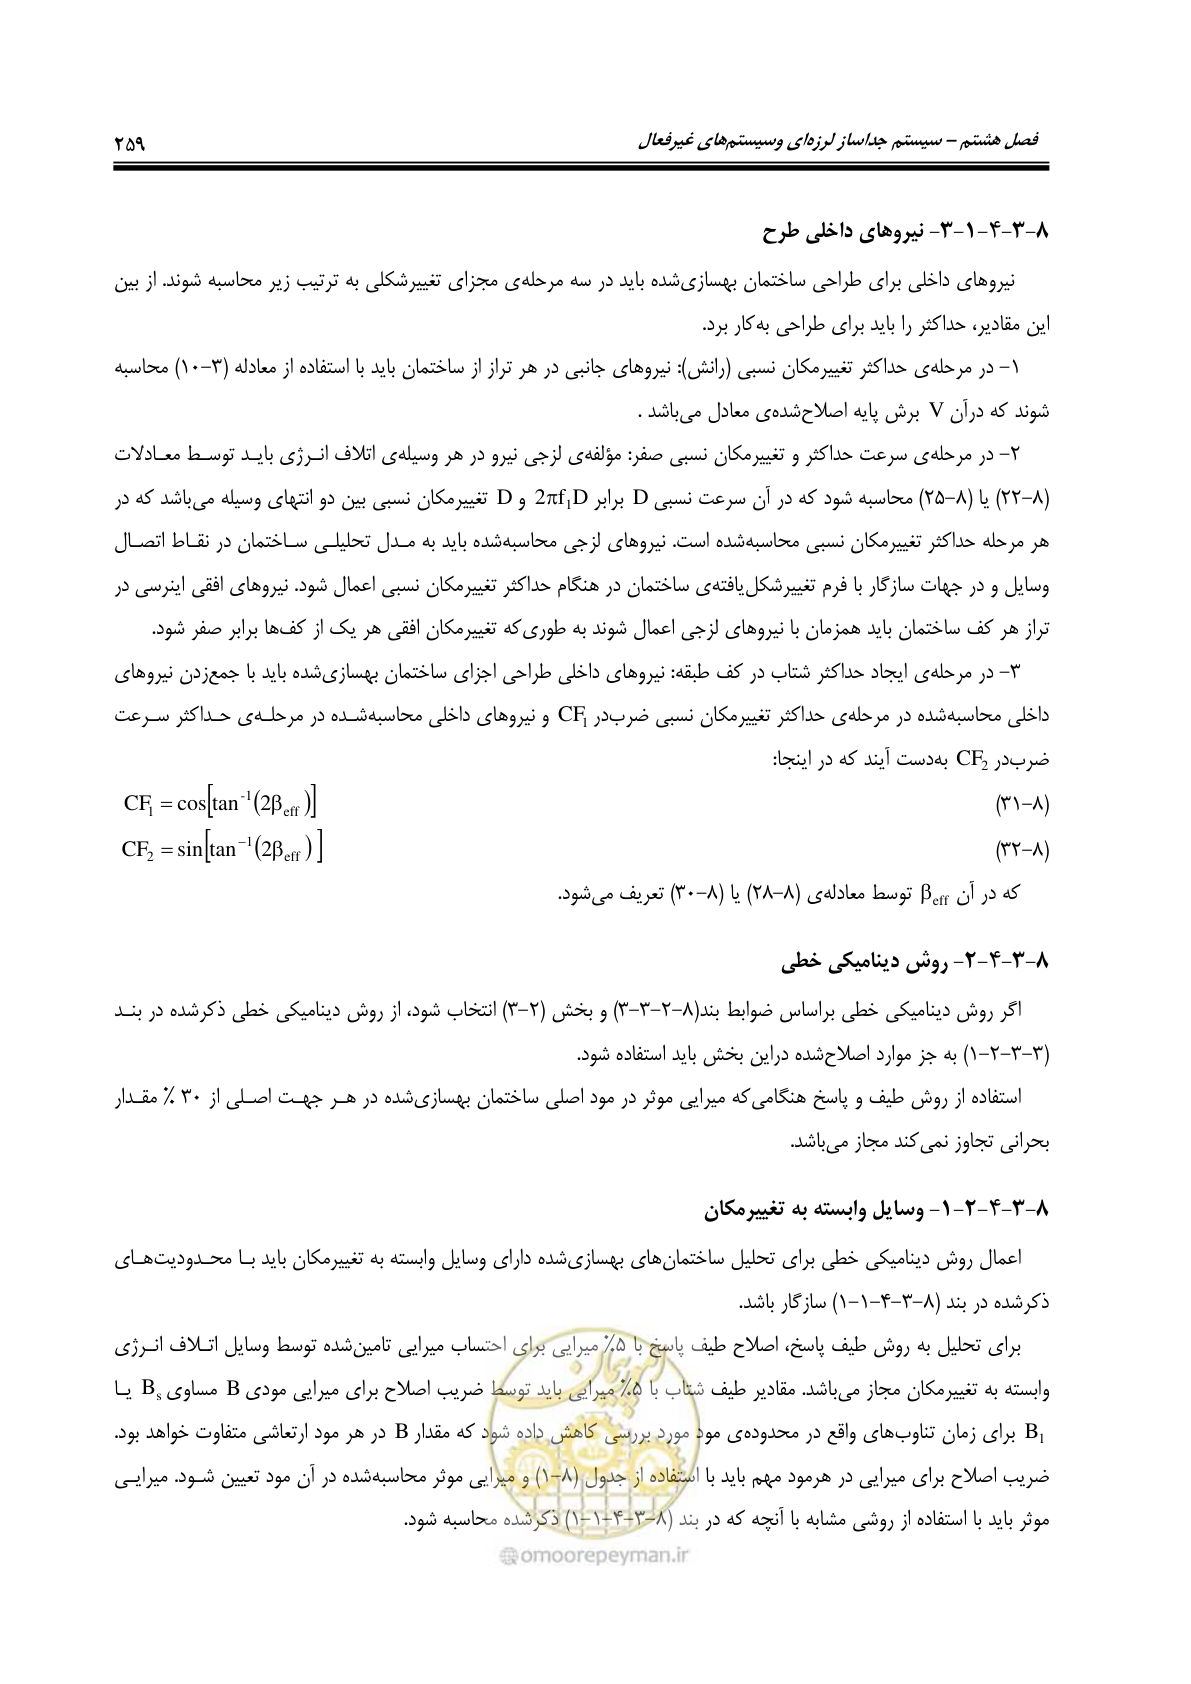 فصل هشتم – سیستم جداساز لرزه‌ای وسیستم‌های غیرفعال ۲۵۹
۸-۳-۴-۱-۳- نیروهای داخلی طرح
نیروهای داخلی برای طراحی ساختمان بهسازی‌شده باید در سه مرحله‌ی مجزای تغییرشکلی به ترتیب زیر محاسبه شوند. از بین
این مقادیر، حداکثر را باید برای طراحی به‌کار برد.
۱- در مرحله‌ی حداکثر تغییرمکان نسبی (رانش): نیروهای جانبی در هر تراز از ساختمان باید با استفاده از معادله (۳-۱۰) محاسبه
شوند که درآن V برش پایه اصلاح‌شده‌ی معادل می‌باشد .
۲- در مرحله‌ی سرعت حداکثر و تغییرمکان نسبی صفر: مؤلفه‌ی لزجی نیرو در هر وسیله‌ی اتلاف انـرژی بایـد توسـط معـادلات
(۸-۲۲) یا (۸-۲۵) محاسبه شود که در آن سرعت نسبی D برابر 2πf₁D و D تغییرمکان نسبی بین دو انتهای وسیله می‌باشد که در
هر مرحله حداکثر تغییرمکان نسبی محاسبه‌شده است. نیروهای لزجی محاسبه‌شده باید به مـدل تحلیلـی سـاختمان در نقـاط اتصـال
وسایل و در جهات سازگار با فرم تغییرشکل‌یافته‌ی ساختمان در هنگام حداکثر تغییرمکان نسبی اعمال شود. نیروهای افقی اینرسی در
تراز هر کف ساختمان باید همزمان با نیروهای لزجی اعمال شوند به طوری‌که تغییرمکان افقی هر یک از کف‌ها برابر صفر شود.
۳- در مرحله‌ی ایجاد حداکثر شتاب در کف طبقه: نیروهای داخلی طراحی اجزای ساختمان بهسازی‌شده باید با جمع‌زدن نیروهای
داخلی محاسبه‌شده در مرحله‌ی حداکثر تغییرمکان نسبی ضرب‌در CF₁ و نیروهای داخلی محاسبه‌شـده در مرحلـه‌ی حـداکثر سـرعت
ضرب‌در CF₂ به‌دست آیند که در اینجا:
(۸-۳۱) CF₁ = cos[tan⁻¹(2β_eff)]
(۸-۳۲) CF₂ = sin[tan⁻¹(2β_eff)]
که در آن β_eff توسط معادله‌ی (۸-۲۸) یا (۸-۳۰) تعریف می‌شود.
۸-۳-۴-۲- روش دینامیکی خطی
اگر روش دینامیکی خطی براساس ضوابط بند(۸-۲-۳-۳) و بخش (۲-۳) انتخاب شود، از روش دینامیکی خطی ذکرشده در بنـد
(۳-۳-۲-۱) به جز موارد اصلاح‌شده دراین بخش باید استفاده شود.
استفاده از روش طیف و پاسخ هنگامی‌که میرایی موثر در مود اصلی ساختمان بهسازی‌شده در هـر جهـت اصـلی از ۳۰ ٪ مقـدار
بحرانی تجاوز نمی‌کند مجاز می‌باشد.
۸-۳-۴-۲-۱- وسایل وابسته به تغییرمکان
اعمال روش دینامیکی خطی برای تحلیل ساختمان‌های بهسازی‌شده دارای وسایل وابسته به تغییرمکان باید بـا محـدودیت‌هـای
ذکرشده در بند (۸-۳-۴-۱-۱) سازگار باشد.
برای تحلیل به روش طیف پاسخ، اصلاح طیف پاسخ با ۵٪ میرایی برای احتساب میرایی تامین‌شده توسط وسایل اتـلاف انـرژی
وابسته به تغییرمکان مجاز می‌باشد. مقادیر طیف شتاب با ۵٪ میرایی باید توسط ضریب اصلاح برای میرایی مودی B مساوی Bₛ یـا
B₁ برای زمان تناوب‌های واقع در محدوده‌ی مود مورد بررسی کاهش داده شود که مقدار B در هر مود ارتعاشی متفاوت خواهد بود.
ضریب اصلاح برای میرایی در هرمود مهم باید با استفاده از جدول (۸-۱) و میرایی موثر محاسبه‌شده در آن مود تعیین شـود. میرایـی
موثر باید با استفاده از روشی مشابه با آنچه که در بند (۸-۳-۴-۱-۱) ذکرشده محاسبه شود.
@omoorepeyman.ir